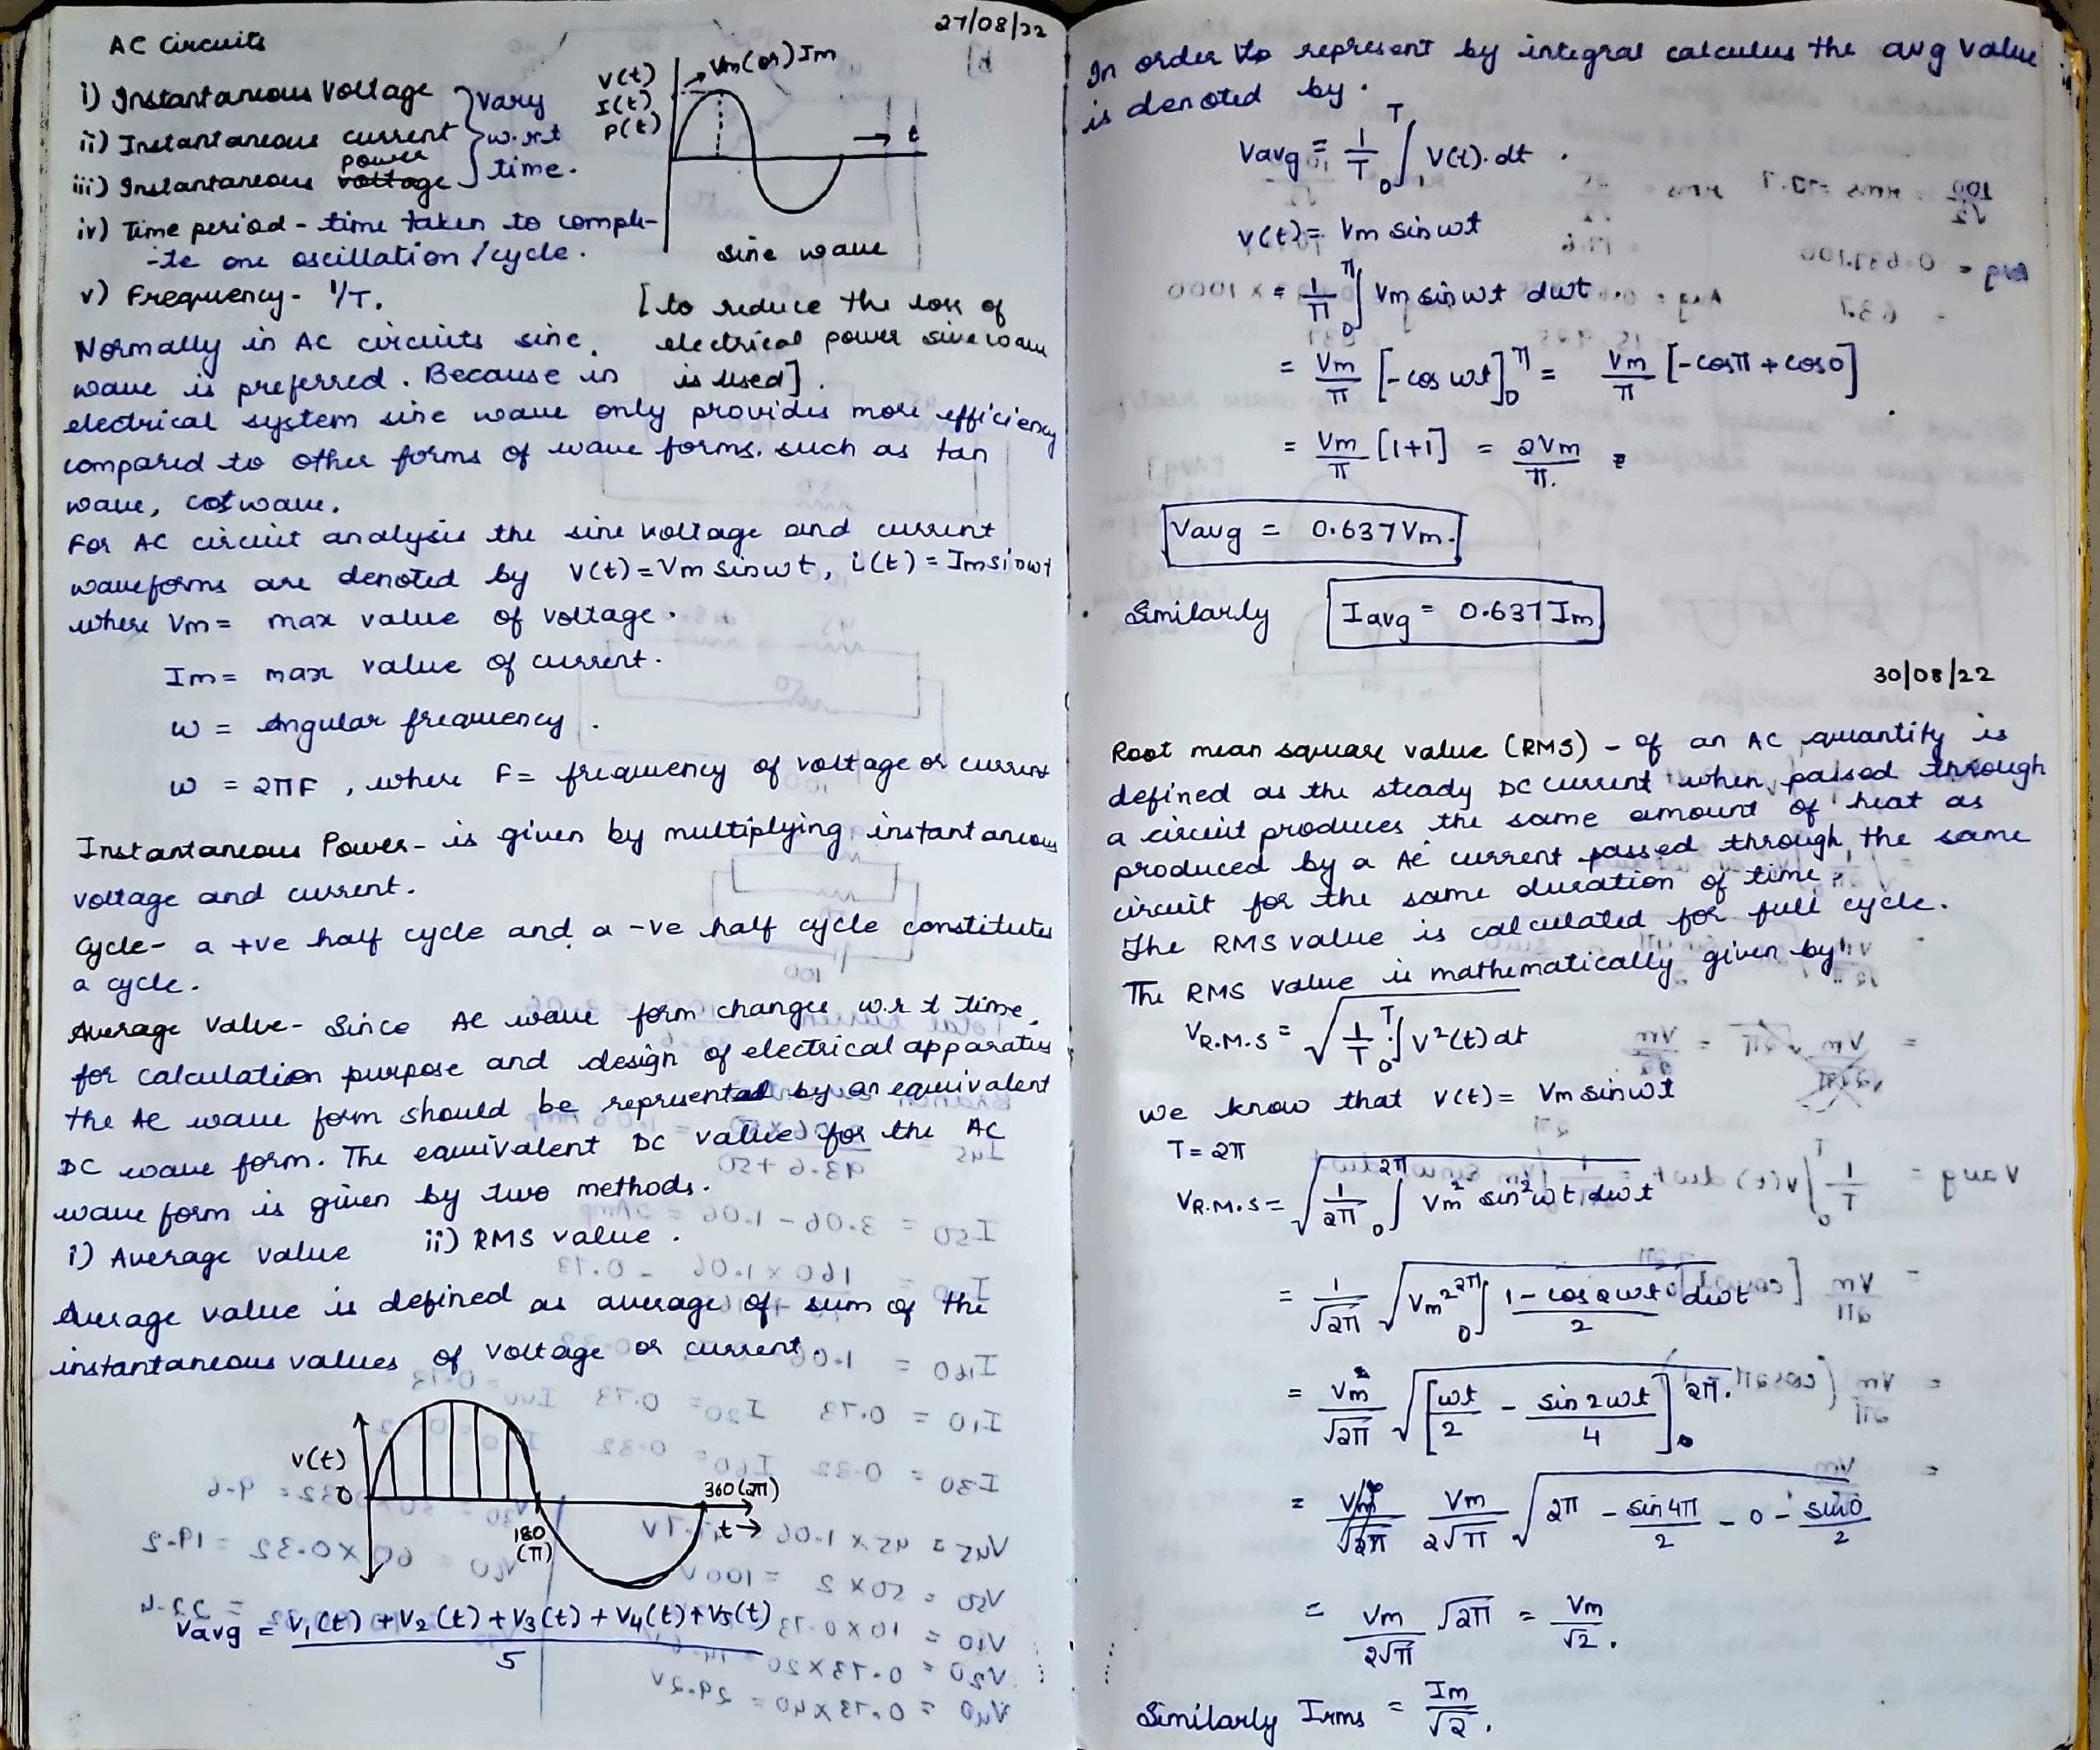 27/08/22
AC Circuits
i) Instantaneous Voltage
ii) Instantaneous current
iii) Instantaneous voltage power
} vary
w.r.t
time.
V(t)
I(t)
P(t)
Vm (or) Im
t
sine wave
iv) Time period - time taken to comple-
-te one oscillation/cycle.
v) Frequency - 1/T.
Normally in AC circuits sine
wave is preferred. Because in
[to reduce the loss of
electrical power sine wave
is used].
electrical system sine wave only provides more efficiency
compared to other forms of wave forms. such as tan
wave, cot wave.
For AC circuit analysis the sine voltage and current
waveforms are denoted by v(t) = Vm sinωt, i(t) = Im sinωt
where Vm = max value of voltage.
Im = max value of current.
ω = Angular frequency.
ω = 2πF, where F = frequency of voltage or current
Instantaneous Power - is given by multiplying instantaneous
voltage and current.
Cycle - a +ve half cycle and a -ve half cycle constitutes
a cycle.
Average Value - Since AC wave form changes w.r.t time,
for calculation purpose and design of electrical apparatus
the AC wave form should be represented by an equivalent
DC wave form. The equivalent DC value for the AC
wave form is given by two methods.
i) Average value ii) RMS value.
Average value is defined as average of sum of the
instantaneous values of voltage or current.
v(t)
0
180
(π)
360(2π)
t→
Vavg = V₁(t) + V₂(t) + V₃(t) + V₄(t) + V₅(t)
5
In order to represent by integral calculus the avg value
is denoted by.
Vavg = 1/T ∫₀ᵀ V(t).dt.
v(t) = Vm sinωt
= 1/π ∫₀^π Vm sinωt dωt.
= Vm/π [-cos ωt]₀^π = Vm/π [-cosπ + cos0]
= Vm/π [1+1] = 2Vm/π.
Vavg = 0.637 Vm.
Similarly Iavg = 0.637 Im
30/08/22
Root mean square value (RMS) - of an AC quantity is
defined as the steady DC current when passed through
a circuit produces the same amount of heat as
produced by a AC current passed through the same
circuit for the same duration of time.
The RMS value is calculated for full cycle.
The RMS value is mathematically given by
VR.M.S = √(1/T ∫₀ᵀ v²(t) dt
we know that v(t) = Vm sinωt
T = 2π
VR.M.S = √(1/2π ∫₀^2π Vm² sin²ωt dωt
= 1/√2π √(Vm² ∫₀^2π 1 - cos2ωt/2 dωt
= Vm/√2π √([ωt/2 - sin2ωt/4]₀^2π.
= Vm/√2π Vm/2√π √(2π - sin4π/2 - 0 - sin0/2
= Vm/2√π √2π = Vm/√2.
Similarly Irms = Im/√2.